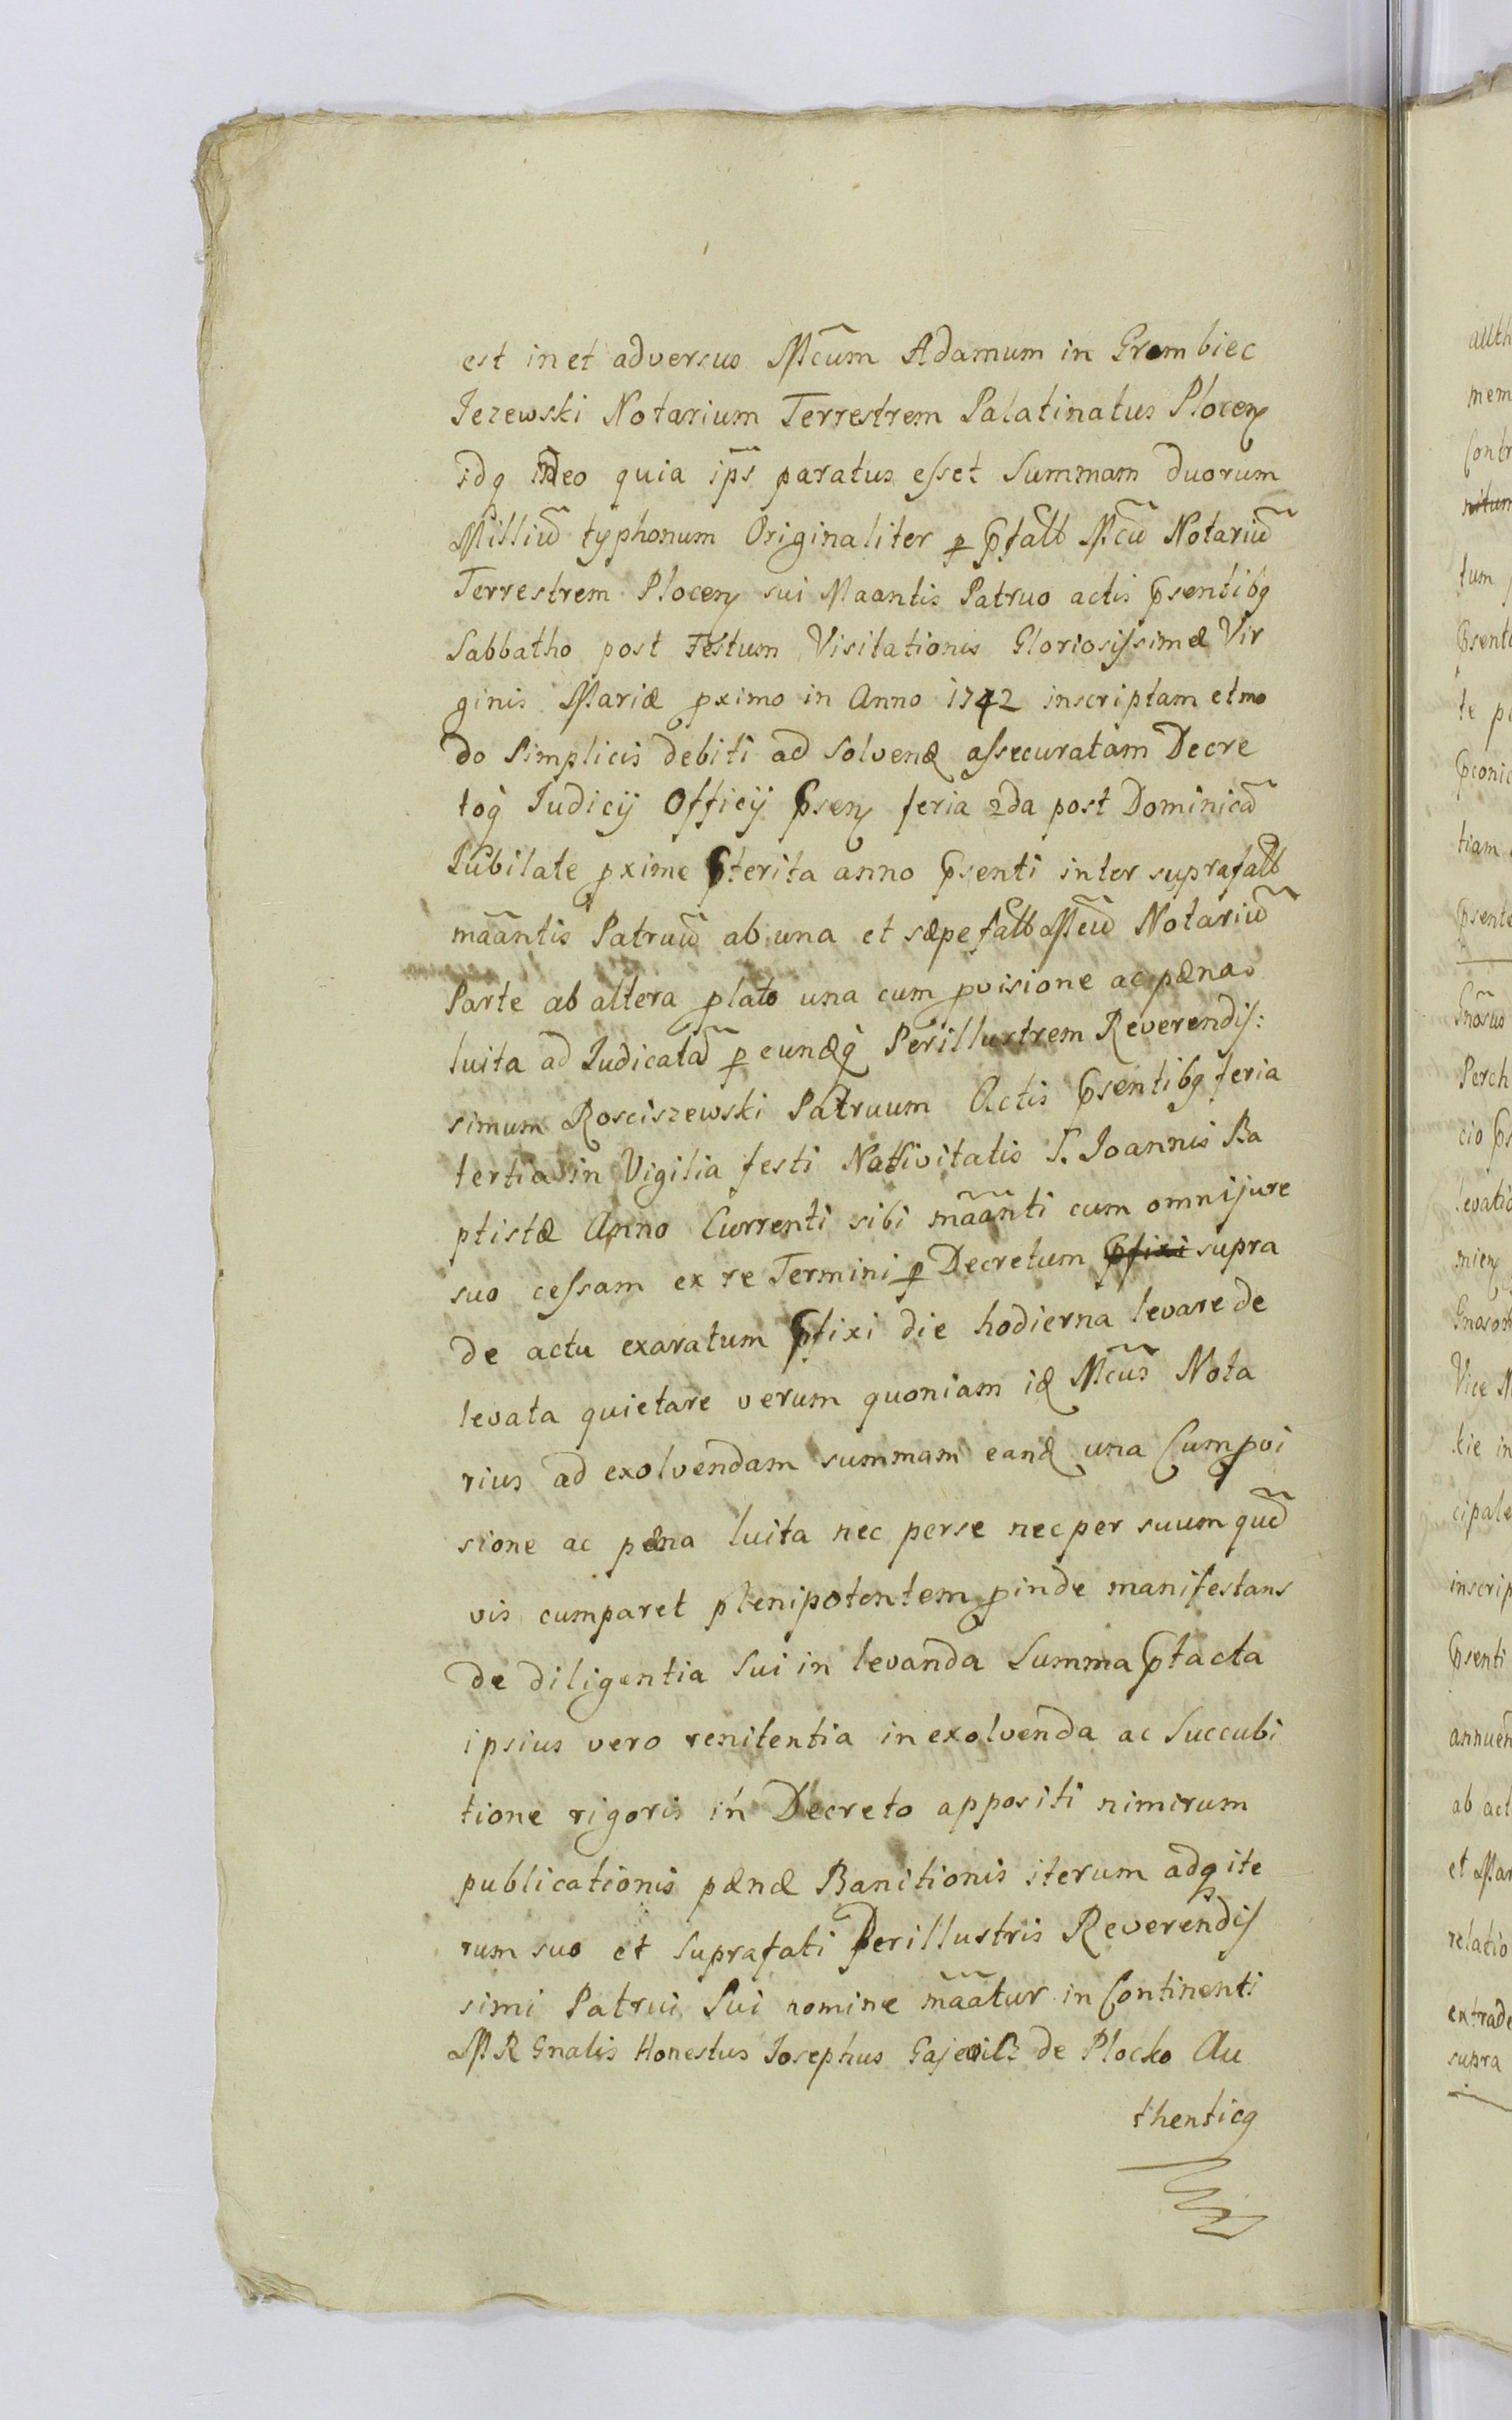 est in et adversus Mcũm Adamum in Grembiec
Jezewski Notarium Terrestrem Palatinatus Plocen
idq ideo quia ips̃ paratus esset Summam duorum
Milliũ typhonum Originaliter p pfatt Mcũ Notariũ
Terrestrem Plocen sui Maantis Patruo actis psentibq
Sabbatho post Festum Visitationis Gloriosissimæ Vir
ginis Mariæ pximo in Anno 1742 inscriptam et mo
do Simplicis debiti ad Solvend assecuratam Decre
toq Judicij Officij psen feria 2da post Dominicã
Jubilate pxime pterita anno psenti inter suprafatt
mãantis Patruũ ab una et sæpefatt Mcũ Notariũ
Parte ab altera plato una cum pvisione ac pæna
luita ad Judicatã p eundq Perillustrem Reverendis:
simum Rosciszewski Patruum Actis psentibq feria
tertia in Vigilia festi Nativitatis S. Joannis Ba
ptistæ Anno Currenti sibi mãanti cum omni jure
suo cessam ex re Termini p Decretum pfixi supra
de actu exaratum pfixi die hodierna levare de
levata quietare verum quoniam id Mcũs Nota
rius ad exolvendam summam eand una Cum pvi
sione ac pæna luita nec perse nec per suum quẽ
vis cumparet plenipotentem pinde manifestans
de diligentia Sui in levanda Summa ptacta
ipsius vero renitentia in exolvenda ac Succubi
tione rigoris in Decreto appositi nimirum
publicationis pænæ Banitionis iterum adq ite
rum suo et Suprafati Perillustris Reverendis
simi Patrui Sui nomine mãatur in Continenti
M R Gnalis Honestus Josephus de Plocko Au
thenticq
auth
mem
Contr
tum
psent
te p
pconi
tiam
psente
Perch
cio ps
levatio
mien
Vice N
kie in
cipale
inscrip
psenti
annuen
ab act
et Mar
relatio
extrade
supra